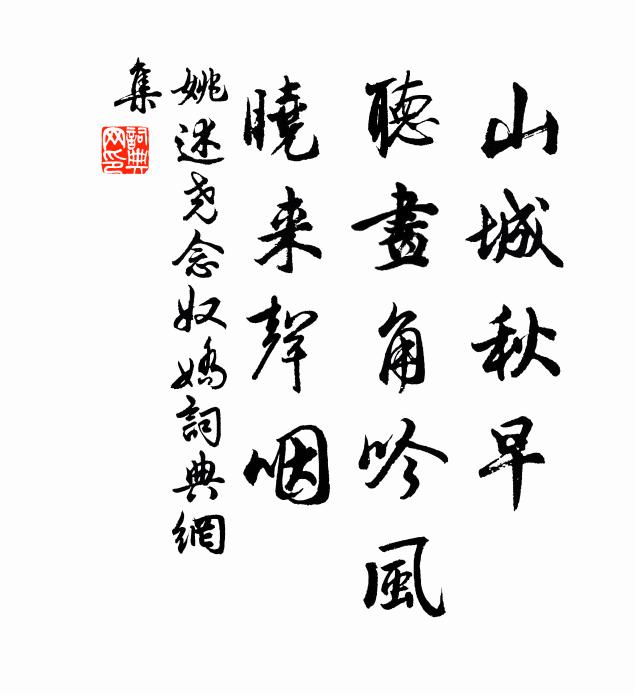 山城秋早
聽畫角吟風
曉来聲咽
姚述尧念奴嬌詞典網
集
詞典
网印